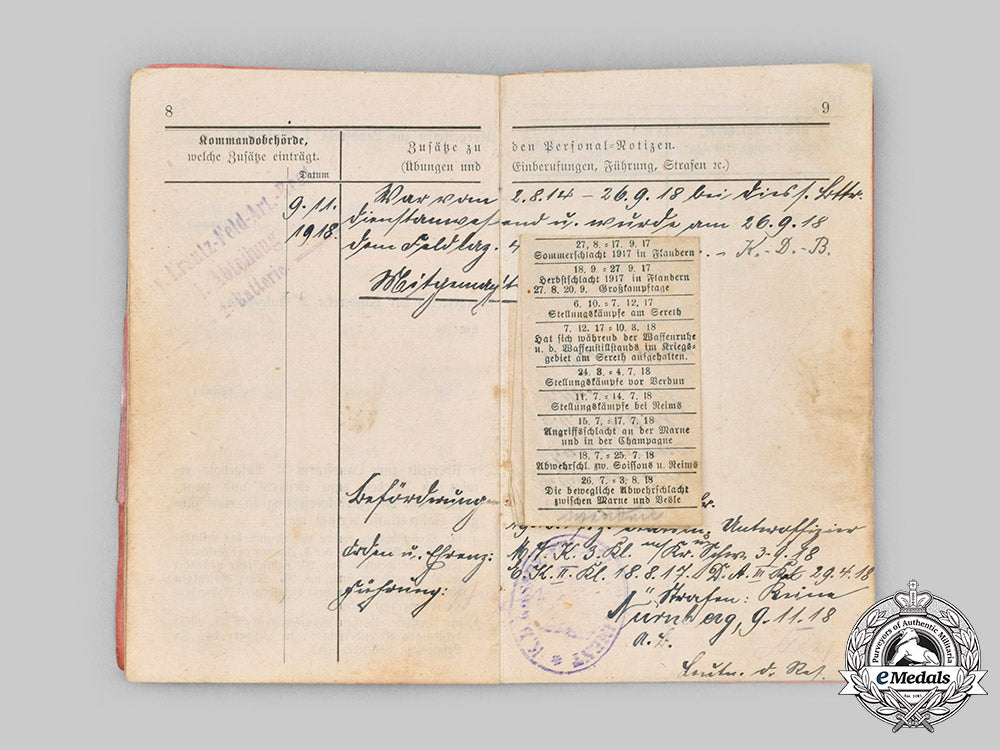 8
9
Kommandobehörde,
welche Zusätze einträgt.
Datum
Zusätze zu den Personal=Notizen.
(Übungen und Einberufungen, Führung, Strafen ꝛc.)
Ersatz-Feld-Art.-
Abteilung
2. Batterie.
9. 11.
1918.
War vom 2.8.14 – 26.9.18 bei diess. Bttr.
dienstanwesend u. wurde am 26.9.18
dem Feldlaz.
K.-D.-B.
Mitgemacht
27. 8. = 17. 9. 17
Sommerschlacht 1917 in Flandern
18. 9. = 27. 9. 17
Herbstschlacht 1917 in Flandern
27. 8. 20. 9. Großkampftage
6. 10. = 7. 12. 17
Stellungskämpfe am Sereth
7. 12. 17 = 10. 3. 18
Hat sich während der Waffenruhe
u. d. Waffenstillstands im Kriegs=
gebiet am Sereth aufgehalten.
24. 3. = 4. 7. 18
Stellungskämpfe vor Verdun
11. 7. = 14. 7. 18
Stellungskämpfe bei Reims
15. 7. = 17. 7. 18
Angriffsschlacht an der Marne
und in der Champagne
18. 7. = 25. 7. 18
Abwehrschl. zw. Soissons u. Reims
26. 7. = 3. 8. 18
Die bewegliche Abwehrschlacht
zwischen Marne und Vesle
Beförderung
Unteroffizier
Orden u. Ehrenz: K. 3. Kl. Kr. Schw. 3.9.18
E. K. II. Kl. 18.8.17. D. A. III Kl. 29.4.18
Führung: Strafen: Keine
Nürnberg, 9.11.18
Leutn. d. Res.
Purveyors of Authentic Militaria
eMedals